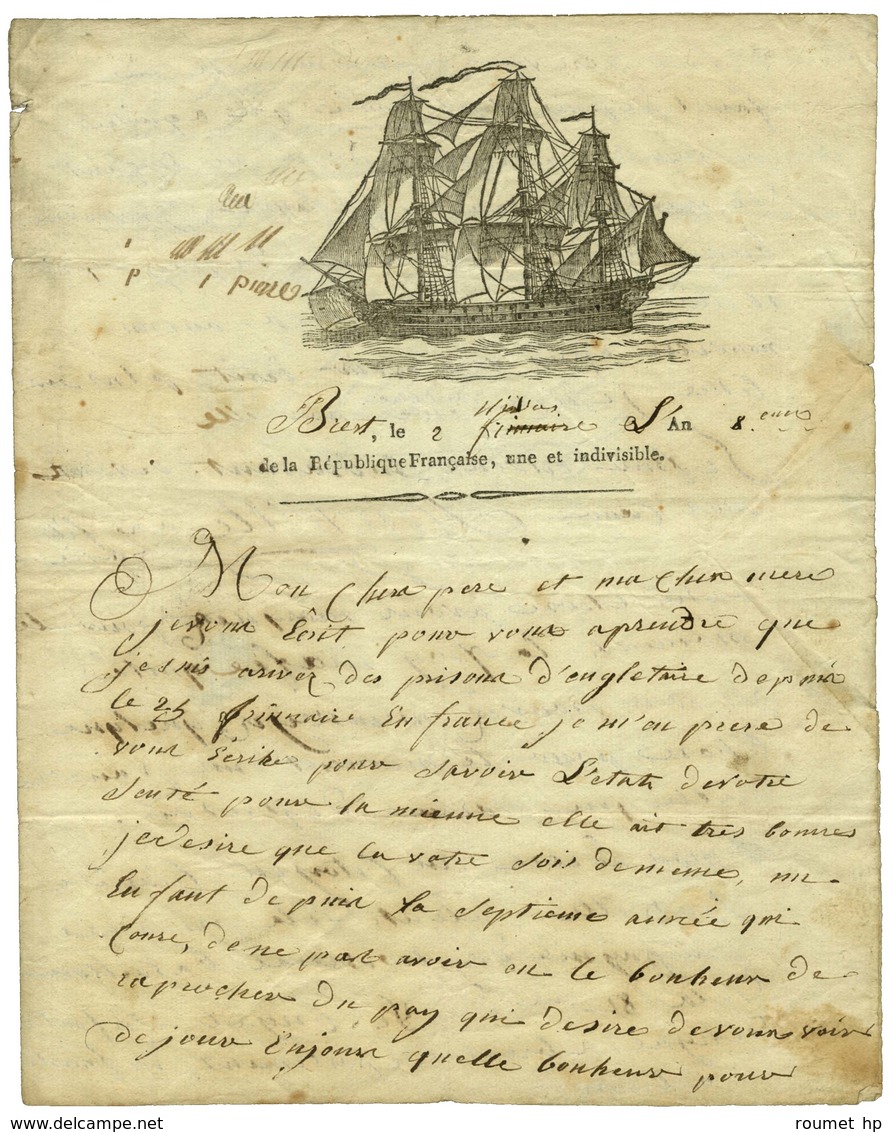 pierre
Brest, le 2 nivos frimaire L'An 8.eme
de la République Française, une et indivisible.
Mon Cher pere et ma Cher mere
je vous Ecrit pour vous aprendre que
je suis arivez des prisons d'engletaire depuis
le 25 frimaire En france je m'en prese de
vous Ecrire pour savoir L'etat de votre
senté pour la mienne elle ait tres bonnes
je desire que la votre sois de meme, un
Enfant de puis la septieme année qui
Coure, de ne pas avoir eu le bonheur de
raprocher du pay qui desire de vous voir
de jour Enjour quelle bonheur pour
roumet hp